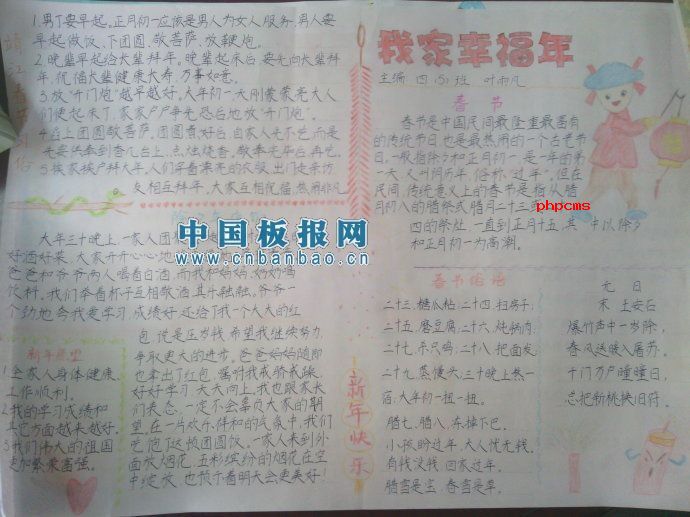 靖江春节习俗
1.男丁要早起。正月初一应该是男人为女人服务,男人要
早起做饭、下团圆、敬菩萨、放鞭炮。
2.晚辈早起给长辈拜年。晚辈起床后,要先向长辈拜
年,祝福长辈健康长寿,万事如意。
3.放“开门炮”越早越好。大年初一,天刚蒙蒙亮大人
们便起了床,家家户户争先恐后地放“开门炮”。
4.早上团圆敬菩萨。团圆煮好后自家人先不吃,而是
先要供奉到香几台上,点烛烧香。敬奉完毕后,再吃。
5.挨家挨户拜大年。人们穿着漂亮的衣服,出门走亲访
友,相互拜年。大家互相祝福,热闹非凡。
大年三十晚上,一家人团
好酒好菜。大家开开心心地
爸爸和爷爷两人喝着白酒,而我和妈妈、奶奶喝
饮料。我们举着杯子互相敬酒,其乐融融。爷爷一
个劲地会我要学习,成绩好,还给了我一个大大的红
包,说是压岁钱,希望我继续努力,
争取更大的进步。爸爸妈妈随即
也拿出了红包,嘱咐我戒骄戒躁,
好好学习,天天向上。我也跟家长
们表态,一定不会辜负大家的期
望。在一片欢乐祥和的气氛中,我们
吃饱了这顿团圆饭。一家人来到外
面放烟花,五彩缤纷的烟花在空
中绽放,也预示着明天会更美好!
新年愿望
1.全家人身体健康,
工作顺利。
2.我的学习成绩和
其它方面越来越好。
3.我们伟大的祖国
更加繁荣富强。
新年快乐
我家幸福年
主编 四(5)班 叶雨凡
春节
春节是中国民间最隆重最富有
的传统节日,也是最热闹的一个古老节
日。一般指除夕和正月初一,是一年的第
一天,又叫阴历年,俗称“过年”。但在
民间,传统意义上的春节是指从腊
月初八的腊祭或腊月二十三
四的祭灶,一直到正月十五,其中以除夕
和正月初一为高潮。
phpcms
中国板报网
www.cnbanbao.cn
春节俗语
二十三,糖瓜粘;二十四,扫房子;
二十五,磨豆腐;二十六,炖锅肉;
二十七,杀只鸡;二十八,把面发;
二十九,蒸馒头;三十晚上熬一
宿;大年初一扭一扭。
腊七、腊八,冻掉下巴。
小孩盼过年,大人忧无钱。
有钱没钱,回家过年。
腊雪是宝,春雪是草。
元日
宋 王安石
爆竹声中一岁除,
春风送暖入屠苏。
千门万户曈曈日,
总把新桃换旧符。